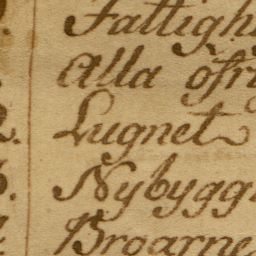 Fattigh
Alla öfri
2. Lugnet
Nybygg
Broarne